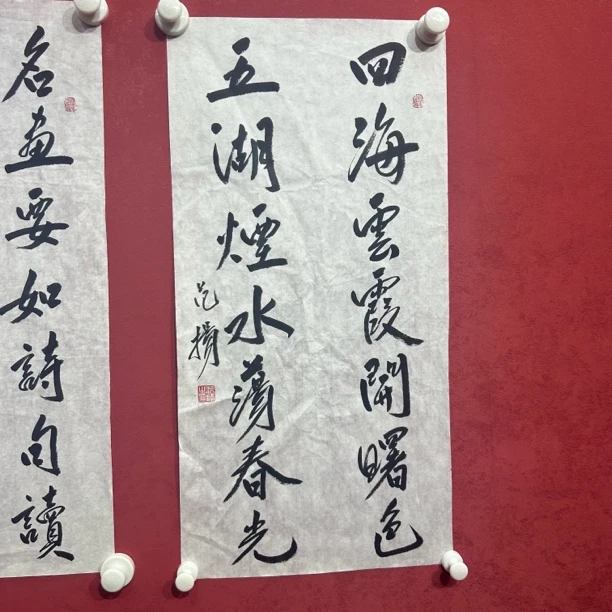 四海雲霞開曙色
五湖煙水蕩春光
名畫要如詩句讀